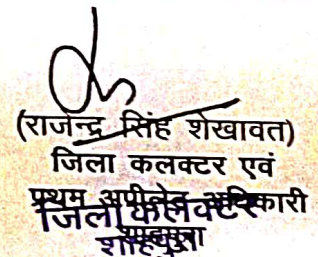 (राजेन्द्र सिंह शेखावत)
जिला कलक्टर एवं
प्रथम अपीलेट अधिकारी
जिला कलेक्टर
शाहपुरा